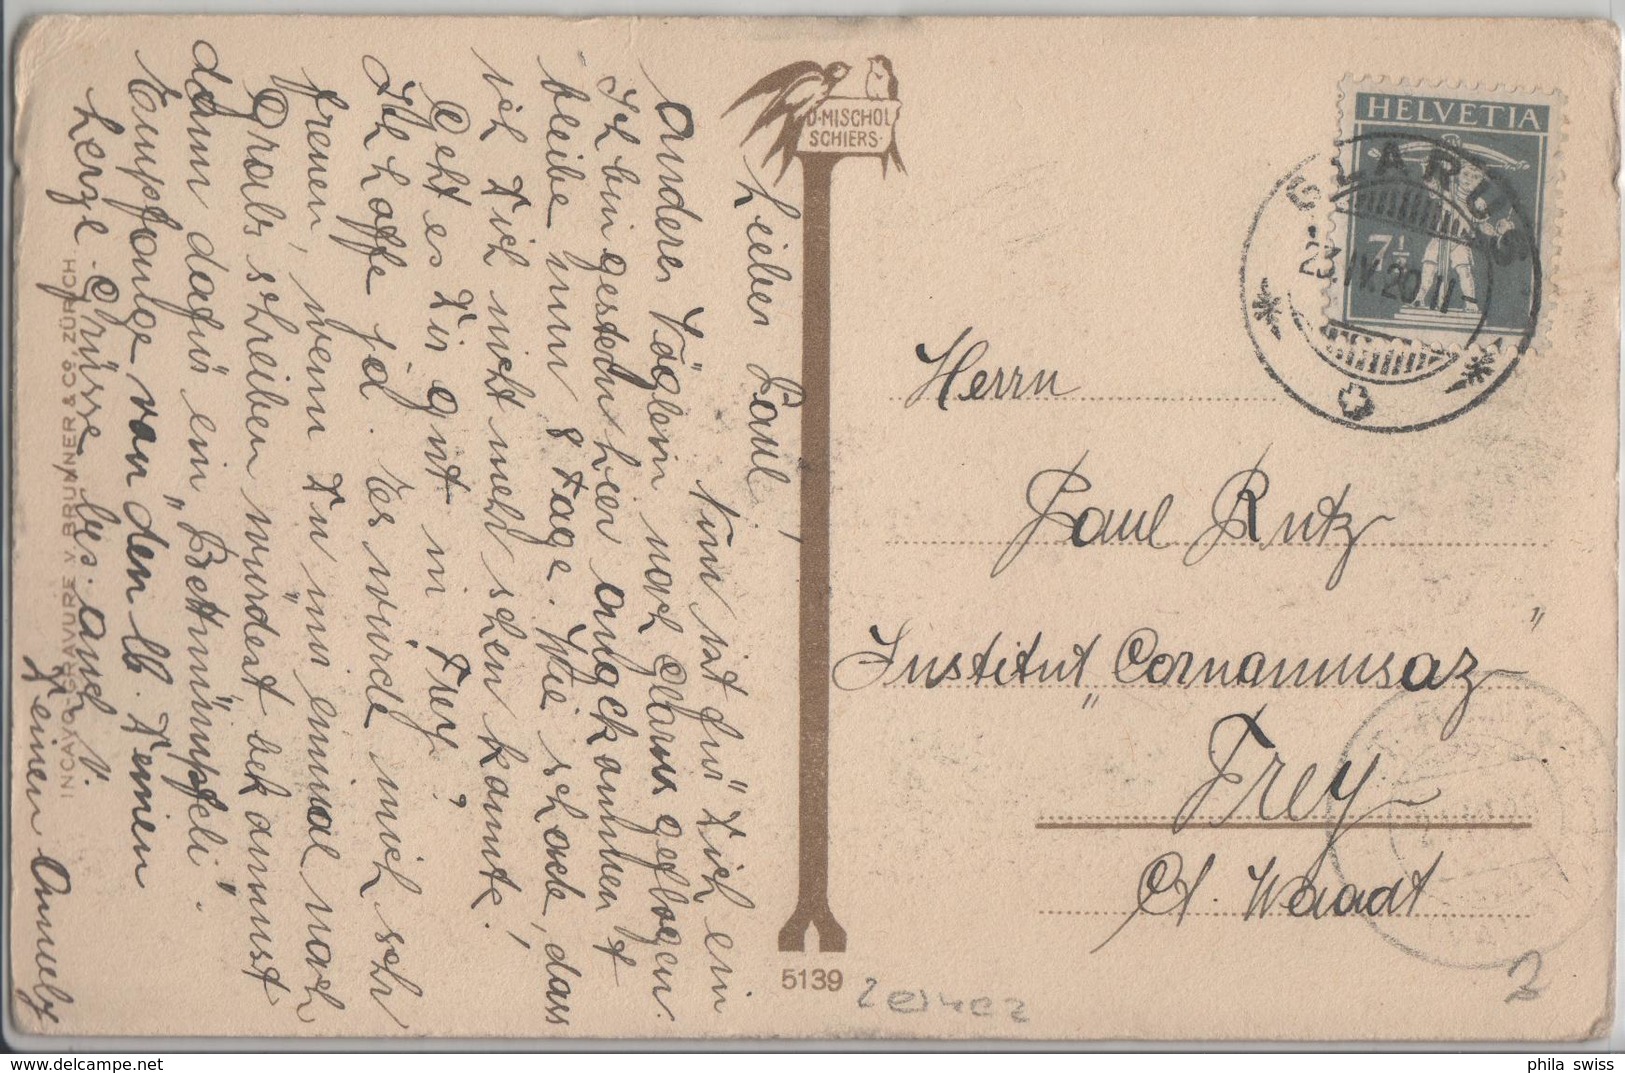 Lieber Paul!
Nun ist für Dich ein
anderes Vöglein nach Glarus geflogen.
Ich bin gestern hier angekommen &
bleibe nun 8 Tage. Wie schade, dass
ich Dich nicht mehr sehen kannte!
Geht es Dir gut in Frey?
Ich hoffe ja. Es würde mich sehr
freuen, wenn Du mir einmal nach
Grabs schreiben würdest bekommst
dann dafür ein "Bettmümpfeli".
Empfange von den lb. Deinen
herze. Grüsse, bes. auch v.
Deinem Anneli
INCAVO-GRAVURE V. BRUNNER & Co, ZÜRICH
D. MISCHOL
SCHIERS.
5139
HELVETIA
7½
GLARUS
23.IV.20.11-
Herrn
Paul Rutz
Institut "Cornamusaz"
Trey
Ct. Waadt
2
phila swiss